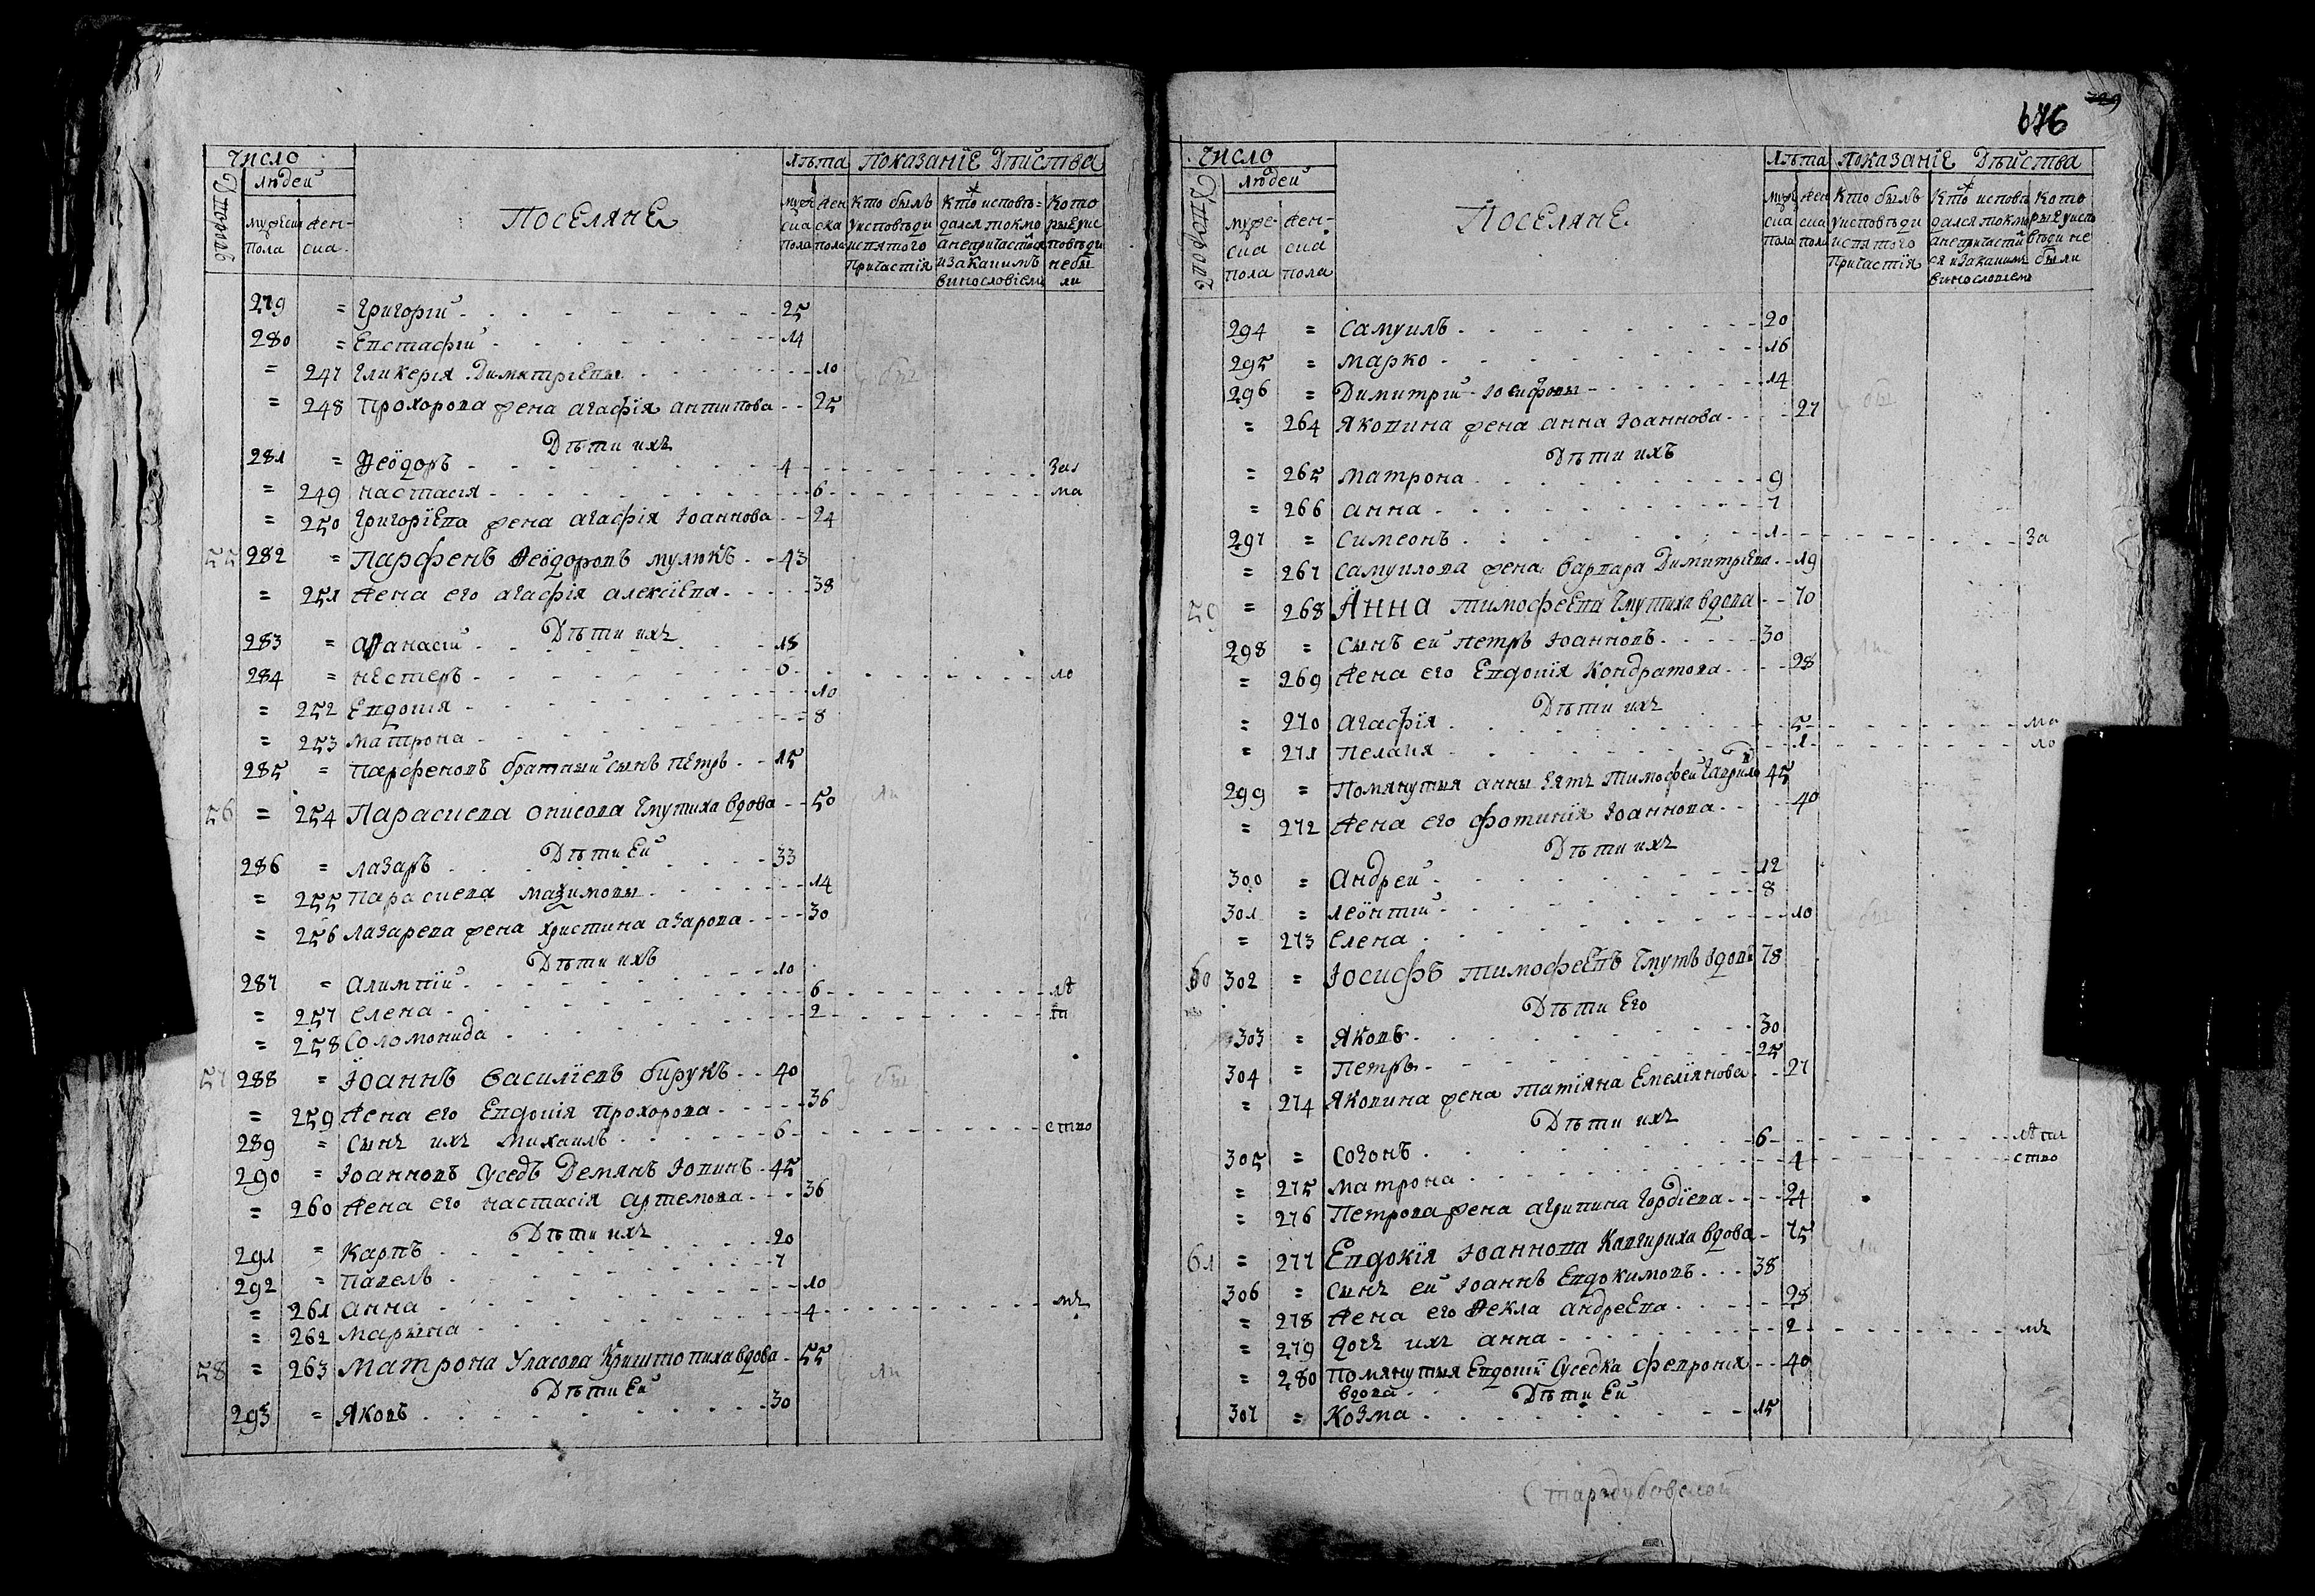 Число
Людей
Дворовъ
мужеска пола
женска
Поселяне
Лѣта
мужеска пола
женска пола
Показаніе Дѣиства
Кто былъ у исповѣди и святого причастія
Кто исповѣдался токмо а не причастился и за какимъ винословіемъ
Которые у исповѣди не были
279 = Григорій 25
280 = Евстафій 14
= 247 Гликерія Димитріевы 10
= 248 Прохорова жена Агафія Антипова 25
Дѣти ихъ
281 = Ѳеодоръ 4
= 249 Настасія 6 ма
= 250 Григоріева жена Агафія Іоаннова 24
55 282 = Парфенъ Ѳеодоровъ Мулюкъ 43
= 251 Жена его Агафія Алексіева 38
Дѣти ихъ
283 = Аѳанасій 18
284 = Нестеръ 0 ло
= 252 Евдокія 10
= 253 Матрона 8
285 = Парфеновъ братный сынъ Петръ 15
56 = 254 Параскева Онисова Гмутиха вдова 50
Дѣти ей
286 = Лазаръ 33
= 255 Параскева Маѯимовы 14
= 256 Лазарева жена Христина Азарова 30
Дѣти ихъ
287 = Алимпій 10
= 257 Елена 6 лѣ
= 258 Соломонида 2
57 288 = Іоаннъ Василіевъ Бирукъ 40
= 259 Жена его Евдокія Прохорова 36
289 = Сынъ ихъ Михаилъ 6 ство
290 = Іоанновъ сусѣдъ Демянъ Іовинъ 45
= 260 Жена его Настасія Артемова 36
Дѣти ихъ
291 = Карпъ 20
292 = Павелъ 7
= 261 Анна 10
= 262 Марина 4 мъ
58 = 263 Матрона Уласова Криштопиха вдова 55
Дѣти ей
293 = Яковъ 30
676
Число
Людей
Дворовъ
мужеска пола
женска пола
Поселяне
Лѣта
мужеска пола
женска пола
Показаніе Дѣйства
Кто былъ у исповѣди и святого причастія
Кто исповѣдался токмо а не причастился и за какимъ винословіемъ
Которые у исповѣди не были
294 = Самуилъ 20
295 = Марко 16
296 = Димитрій Іосифовы 14
= 264 Яковина жена Анна Іоаннова 27
Дѣти ихъ
= 265 Матрона 9
= 266 Анна 7
297 = Симеонъ 1 За
= 267 Самуилова жена Варвара Димитріева 19
59 = 268 Анна Тимофеева Гмутиха вдова 70
298 = Сынъ ей Петръ Іоанновъ 30
= 269 Жена его Евдокія Кондратова 28
Дѣти ихъ
= 270 Агафія 5 ма
= 271 Пелагія 1 ло
299 = Помянутыя Анны зять Тимофей Гаврило 45
= 272 Жена его Фотинія Іоаннова 40
Дѣти ихъ
300 = Андрей 12
301 = Леонтій 8
= 273 Елена 10
60 302 = Іосифъ Тимофеевъ Гмутъ вдовъ 78
Дѣти его
303 = Яковъ 30
304 = Петръ 25
= 274 Яковина жена Татіяна Емеліянова 27
Дѣти ихъ
305 = Созонъ 6
= 275 Матрона 4 ство
= 276 Петрова жена Агрипина Гордіева 24
61 = 277 Евдокія Іоаннова вдова 75
306 = Сынъ ей Іоаннъ Евдокимовъ 38
= 278 Жена его Ѳекла Андреева 28
= 279 Дочъ ихъ Анна 2 мъ
= 280 Помянутыя Евдокіи сусѣдка Февронія вдова 40
Дѣти ей
307 = Козма 15
Стародубовской